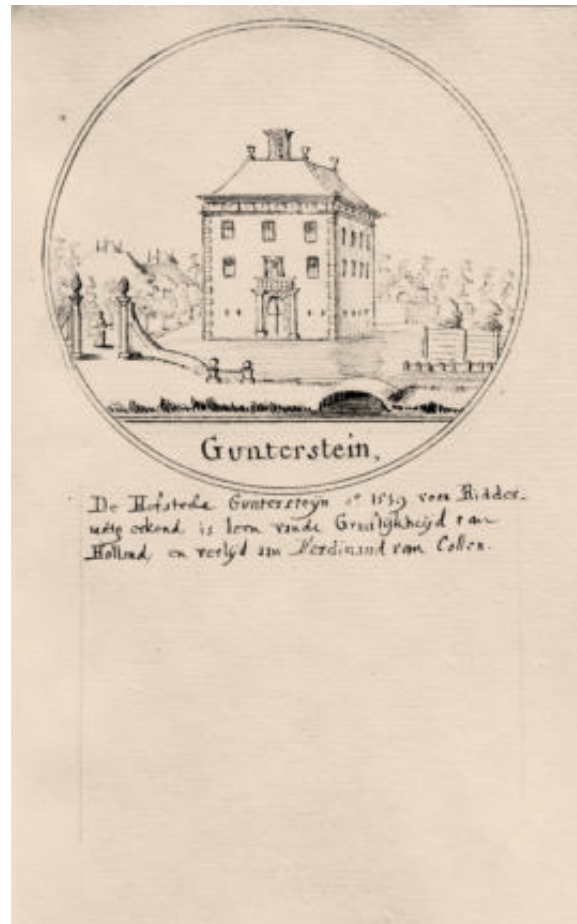 Gunterstein,
De Hofstede Guntersteyn 1539 voor Ridder-
erkend, is leen vande Graaflijkheijd van
Holland, en verlijd aan Ferdinand van Collen.